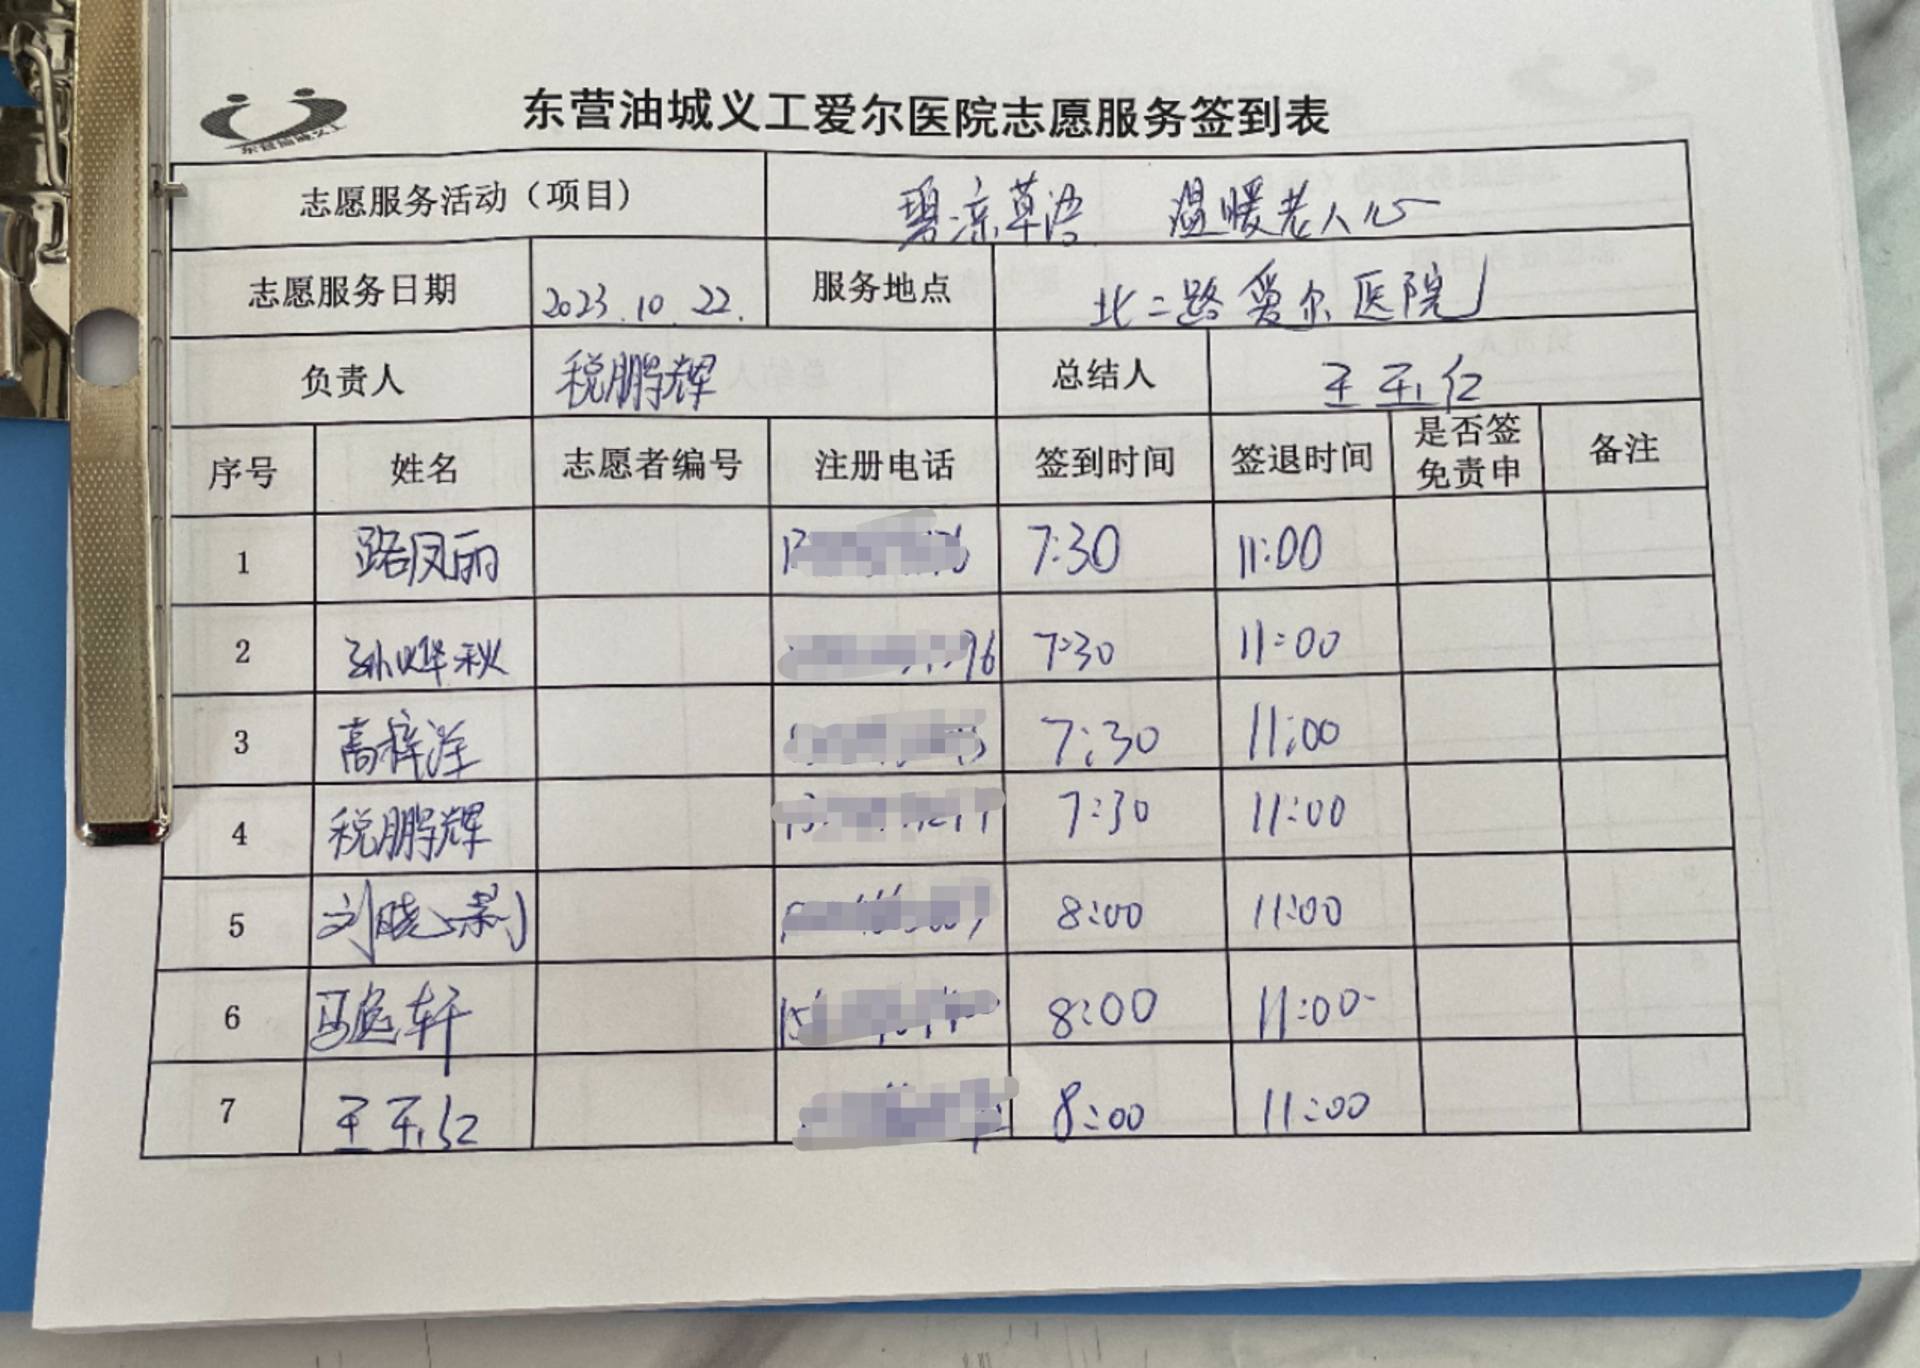 东营油城义工
东营油城义工爱尔医院志愿服务签到表
志愿服务活动（项目） 碧凉草语 温暖老人心
志愿服务日期 2023.10.22. 服务地点 北二路爱尔医院
负责人 税鹏辉 总结人 王玉红
序号 姓名 志愿者编号 注册电话 签到时间 签退时间 是否签免责申 备注
1 路凤丽 7:30 11:00
2 孙烨秋 96 7:30 11:00
3 高梓洋 7:30 11:00
4 税鹏辉 7:30 11:00
5 刘晓 8:00 11:00
6 马逸轩 8:00 11:00
7 王玉红 8:00 11:00